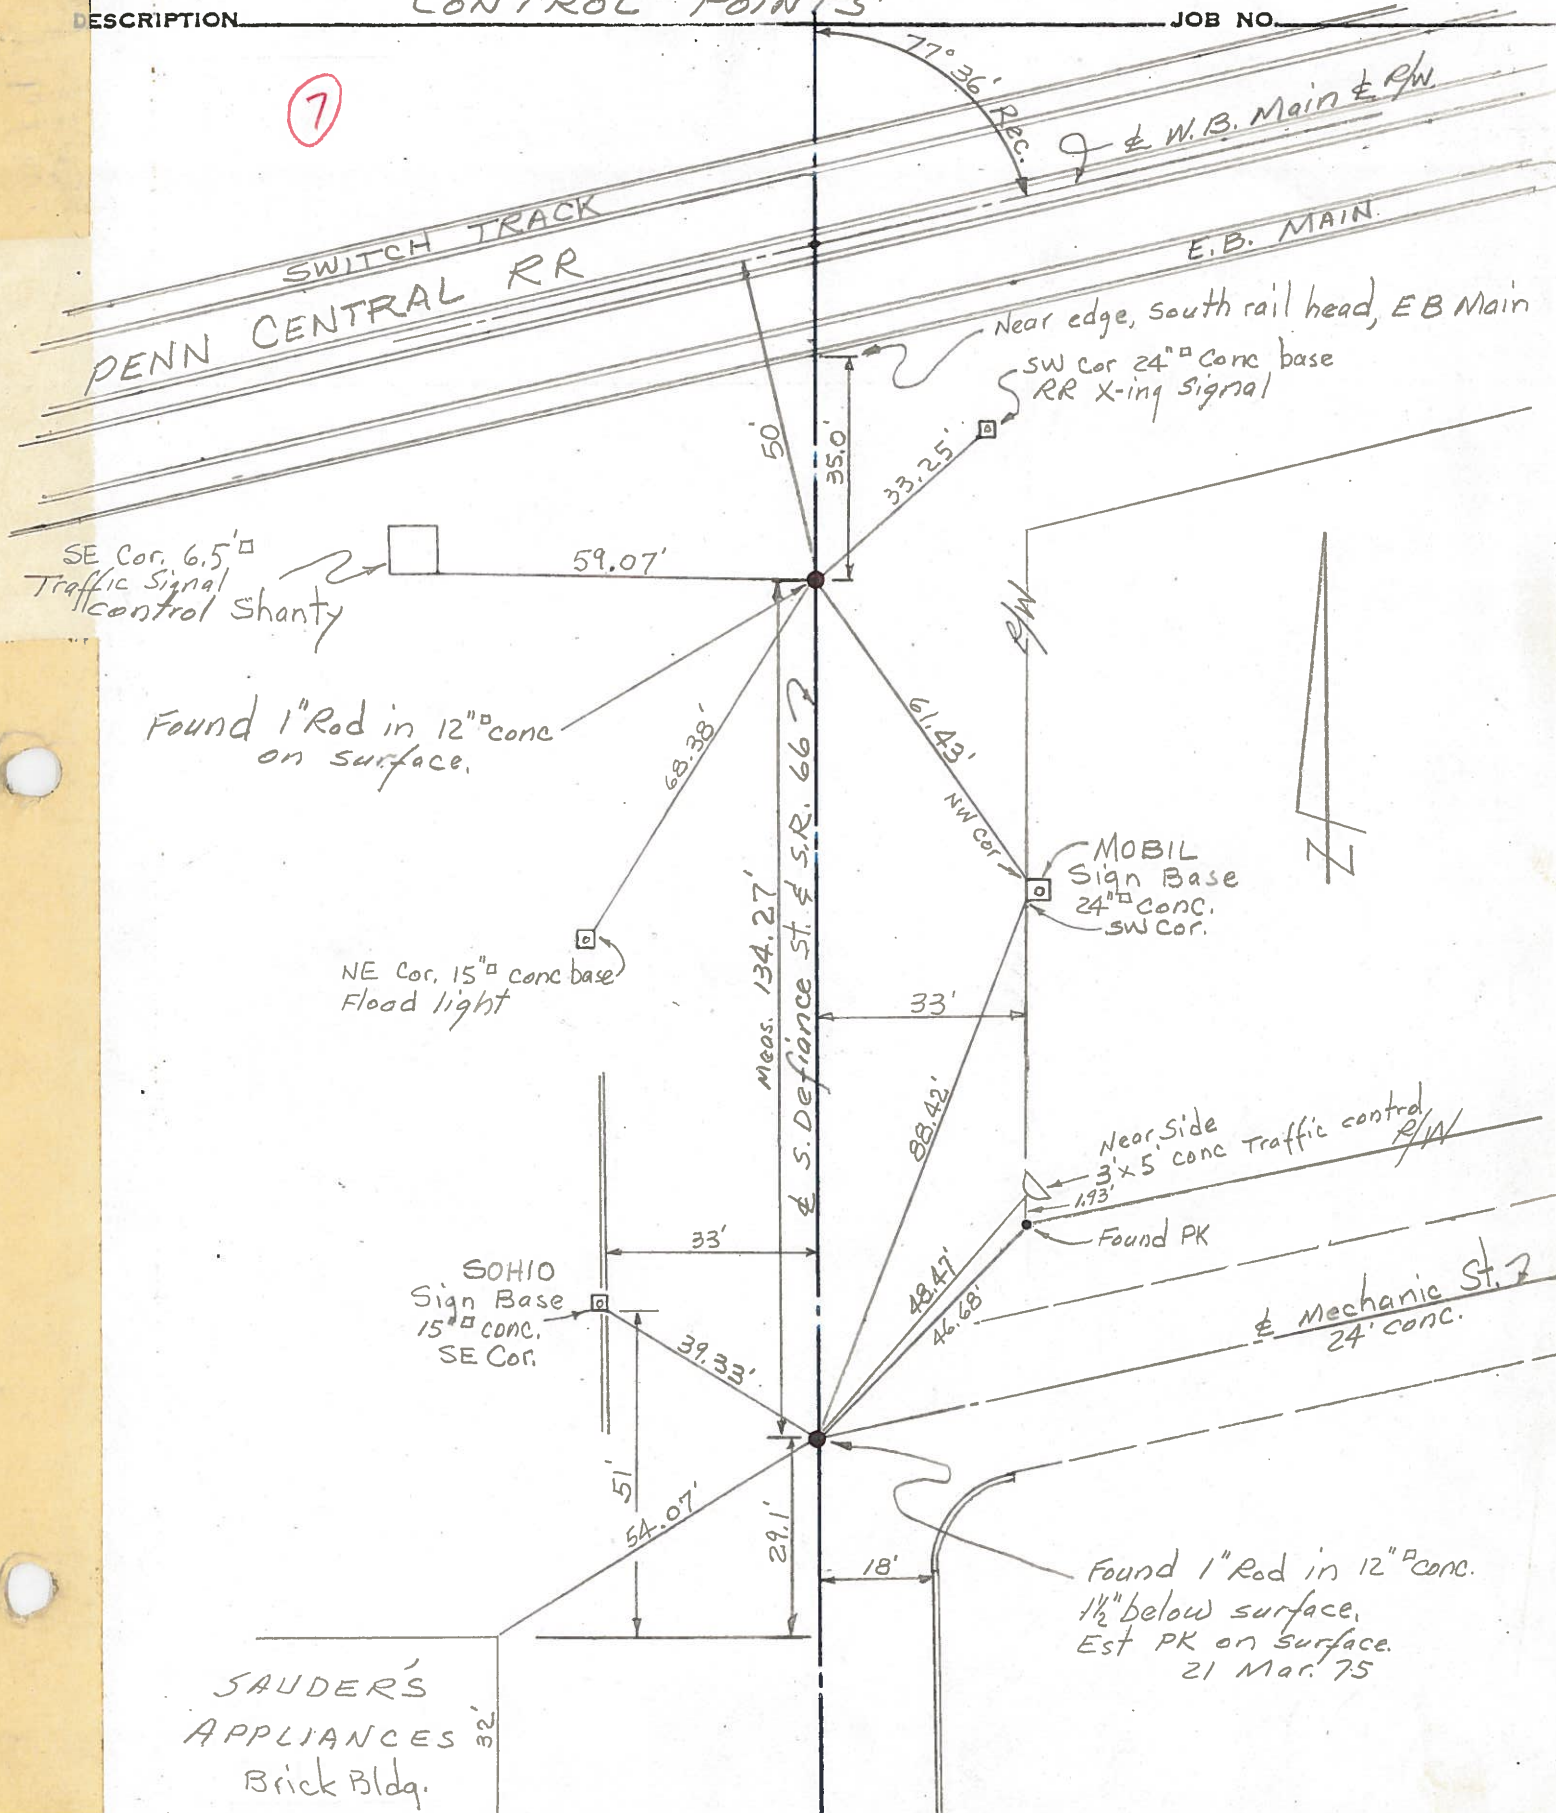 CONTROL POINTS
DESCRIPTION
JOB NO.
7
77° 36' Rec.
℄ W.B. Main ℄ R/W.
SWITCH TRACK
PENN CENTRAL RR
E.B. MAIN
Near edge, south rail head, EB Main
SW Cor 24"□ Conc base
RR X-ing Signal
50'
35.0'
33.25'
SE Cor. 6.5'□
Traffic Signal
Control Shanty
59.07'
R/W
Found 1" Rod in 12"□ conc
on surface.
68.38'
61.43'
NW Cor
MOBIL
Sign Base
24"□ conc.
SW Cor.
Meas. 134.27'
℄ S. Defiance St. & S.R. 66
NE Cor. 15"□ conc base
Flood light
33'
88.42'
Near Side
3'x5' conc Traffic control
R/W
1.93'
Found PK
33'
SOHIO
Sign Base
15"□ conc.
SE Cor.
48.47'
46.68'
39.33'
℄ Mechanic St.
24' conc.
51'
54.07'
29.1'
18'
Found 1" Rod in 12"□ conc.
1½" below surface.
Est PK on surface.
21 Mar. '75
SAUDER'S
APPLIANCES
Brick Bldg.
32'
N